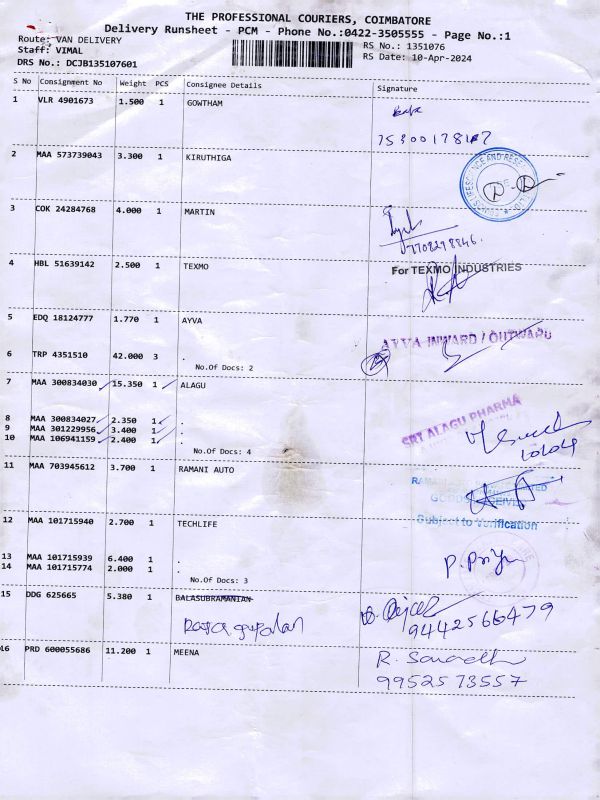 THE PROFESSIONAL COURIERS, COIMBATORE
Delivery Runsheet - PCM - Phone No.:0422-3505555 - Page No.:1
Route: VAN DELIVERY
Staff: VIMAL
RS No.: 1351076
DRS No.: DCJB135107601
RS Date: 10-Apr-2024
S No Consignment No Weight PCS Consignee Details Signature
1 VLR 4901673 1.500 1 GOWTHAM
2 MAA 573739043 3.300 1 KIRUTHIGA
3 COK 24284768 4.000 1 MARTIN
7708278846.
4 HBL 51639142 2.500 1 TEXMO For TEXMO INDUSTRIES
5 EDQ 18124777 1.770 1 AYVA
AYVA INWARD / OUTWARD
6 TRP 4351510 42.000 3 .
No.Of Docs: 2
7 MAA 300834030 15.350 1 ALAGU
SRI ALAGU PHARMA
8 MAA 300834027 2.350 1 .
9 MAA 301229956 3.400 1 .
10 MAA 106941159 2.400 1 .
No.Of Docs: 4
11 MAA 703945612 3.700 1 RAMANI AUTO
Subject to Verification
12 MAA 101715940 2.700 1 TECHLIFE
13 MAA 101715939 6.400 1 .
14 MAA 101715774 2.000 1 .
P. Priya
No.Of Docs: 3
15 DDG 625665 5.380 1 BALASUBRAMANIAN
9442566479
16 PRD 600055686 11.200 1 MEENA
9952573557